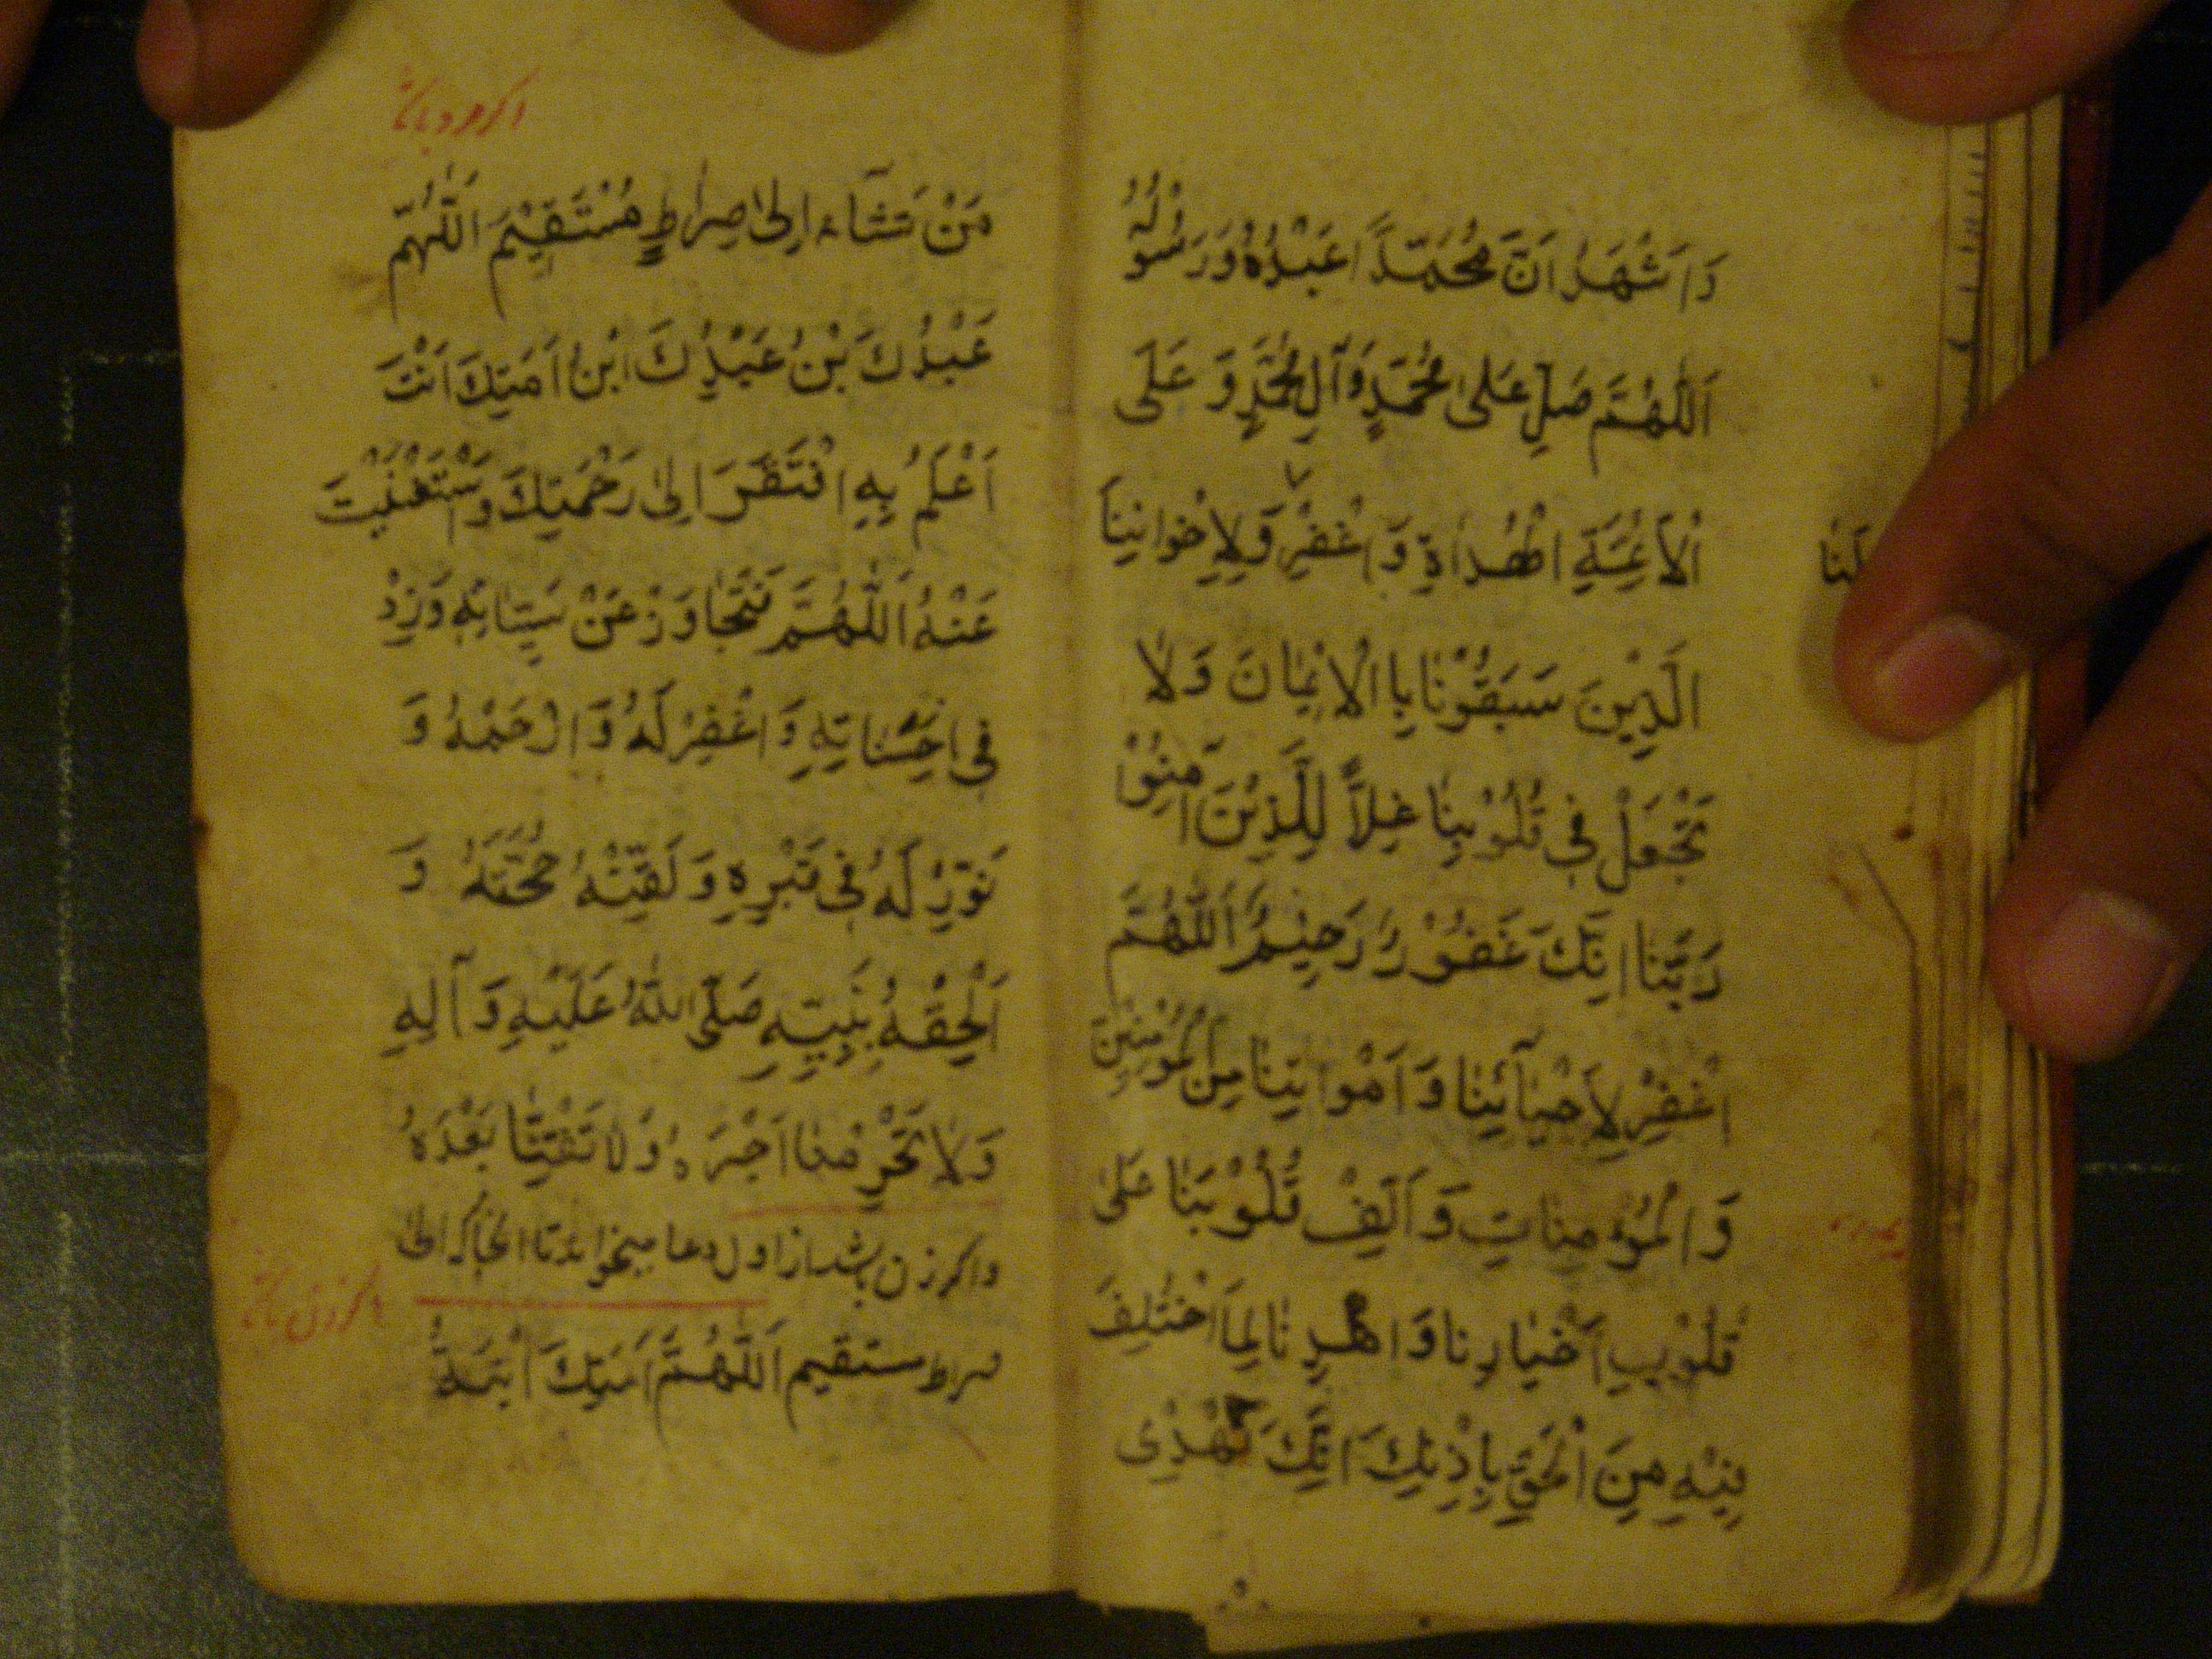 وَاَشْهَدُ اَنَّ مُحَمَّدًا عَبْدُهُ وَرَسُولُهُ
اَللّٰهُمَّ صَلِّ عَلىٰ مُحَمَّدٍ وَآلِ مُحَمَّدٍ وَ عَلَى
الْاَئِمَّةِ الْهُدَاةِ وَ اغْفِرْ وَلِاِخْوانِنَا
لَنَا
الَّذِينَ سَبَقُوْنَا بِاالْاِيْمَانِ وَلَا
تَجْعَلْ فِي قُلُوْبِنَا غِلاًّ لِلَّذِيْنَ آمَنُوْا
رَبَّنَا اِنَّكَ غَفُوْرٌ رَحِيْمٌ اَللّٰهُمَّ
اغْفِرْ لِاَحْيَآئِنَا وَ اَمْوَاتِنَا مِنَ الْمُؤْمِنِيْنَ
وَ الْمُؤْمِنَاتِ وَ اَلِّفْ قُلُوْبَنَا عَلىٰ
قُلُوْبِ اَخْيَارِنَا وَ اهْدِنَا لِمَا اخْتُلِفَ
فِيْهِ مِنَ الْحَقِّ بِاِذْنِكَ اِنَّكَ تَهْدِى
اكر مرد باشد
مَنْ تَشَآءُ اِلىٰ صِرَاطٍ مُسْتَقِيْمٍ اَللّٰهُمَّ
عَبْدُكَ بْنُ عَبْدِكَ ابْنُ اَمَتِكَ اَنْتَ
اَعْلَمُ بِهِ افْتَقَرَ اِلىٰ رَحْمَتِكَ وَاسْتَغْنَيْتَ
عَنْهُ اَللّٰهُمَّ فَتَجَاوَزْ عَنْ سَيِّاتِهِ وَزِدْ
فى اِحْسَنَاتِهِ وَ اغْفِرْ لَهُ وَ ارْحَمْهُ وَ
نَوِّرْ لَهُ فى قَبْرِهِ وَ لَقِّنْهُ حُجَّتَهُ وَ
اَلْحِقْهُ بِنَبِيِّهِ صَلَّى اللّٰهُ عَلَيْهِ وَ آلِهِ
وَلَا تَحْرِمْنَا اَجْرَهُ وَلَا تَفْتِنَّا بَعْدَهُ
واكر زن باشد از اول دعا ميخواند تا انجا كه الى
صراط مستقيم اَللّٰهُمَّ اَمَتِكَ اَبْنَةُ
اكر زن باشد